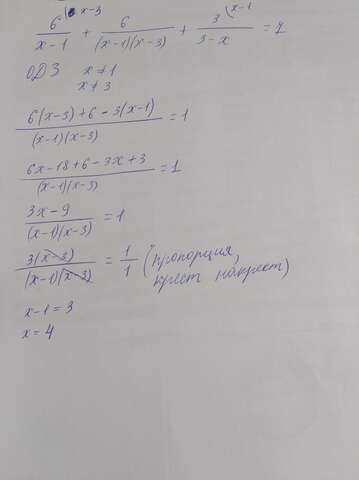 6 (x-3 / x-1 + 6 / (x-1)(x-3) + 3 (x-1 / 3-x = 1
ОДЗ x≠1
x≠3
6(x-3)+6-3(x-1) / (x-1)(x-3) = 1
6x-18+6-3x+3 / (x-1)(x-3) = 1
3x-9 / (x-1)(x-3) = 1
3(x-3) / (x-1)(x-3) = 1 / 1 (пропорция,
крест накрест)
x-1=3
x=4